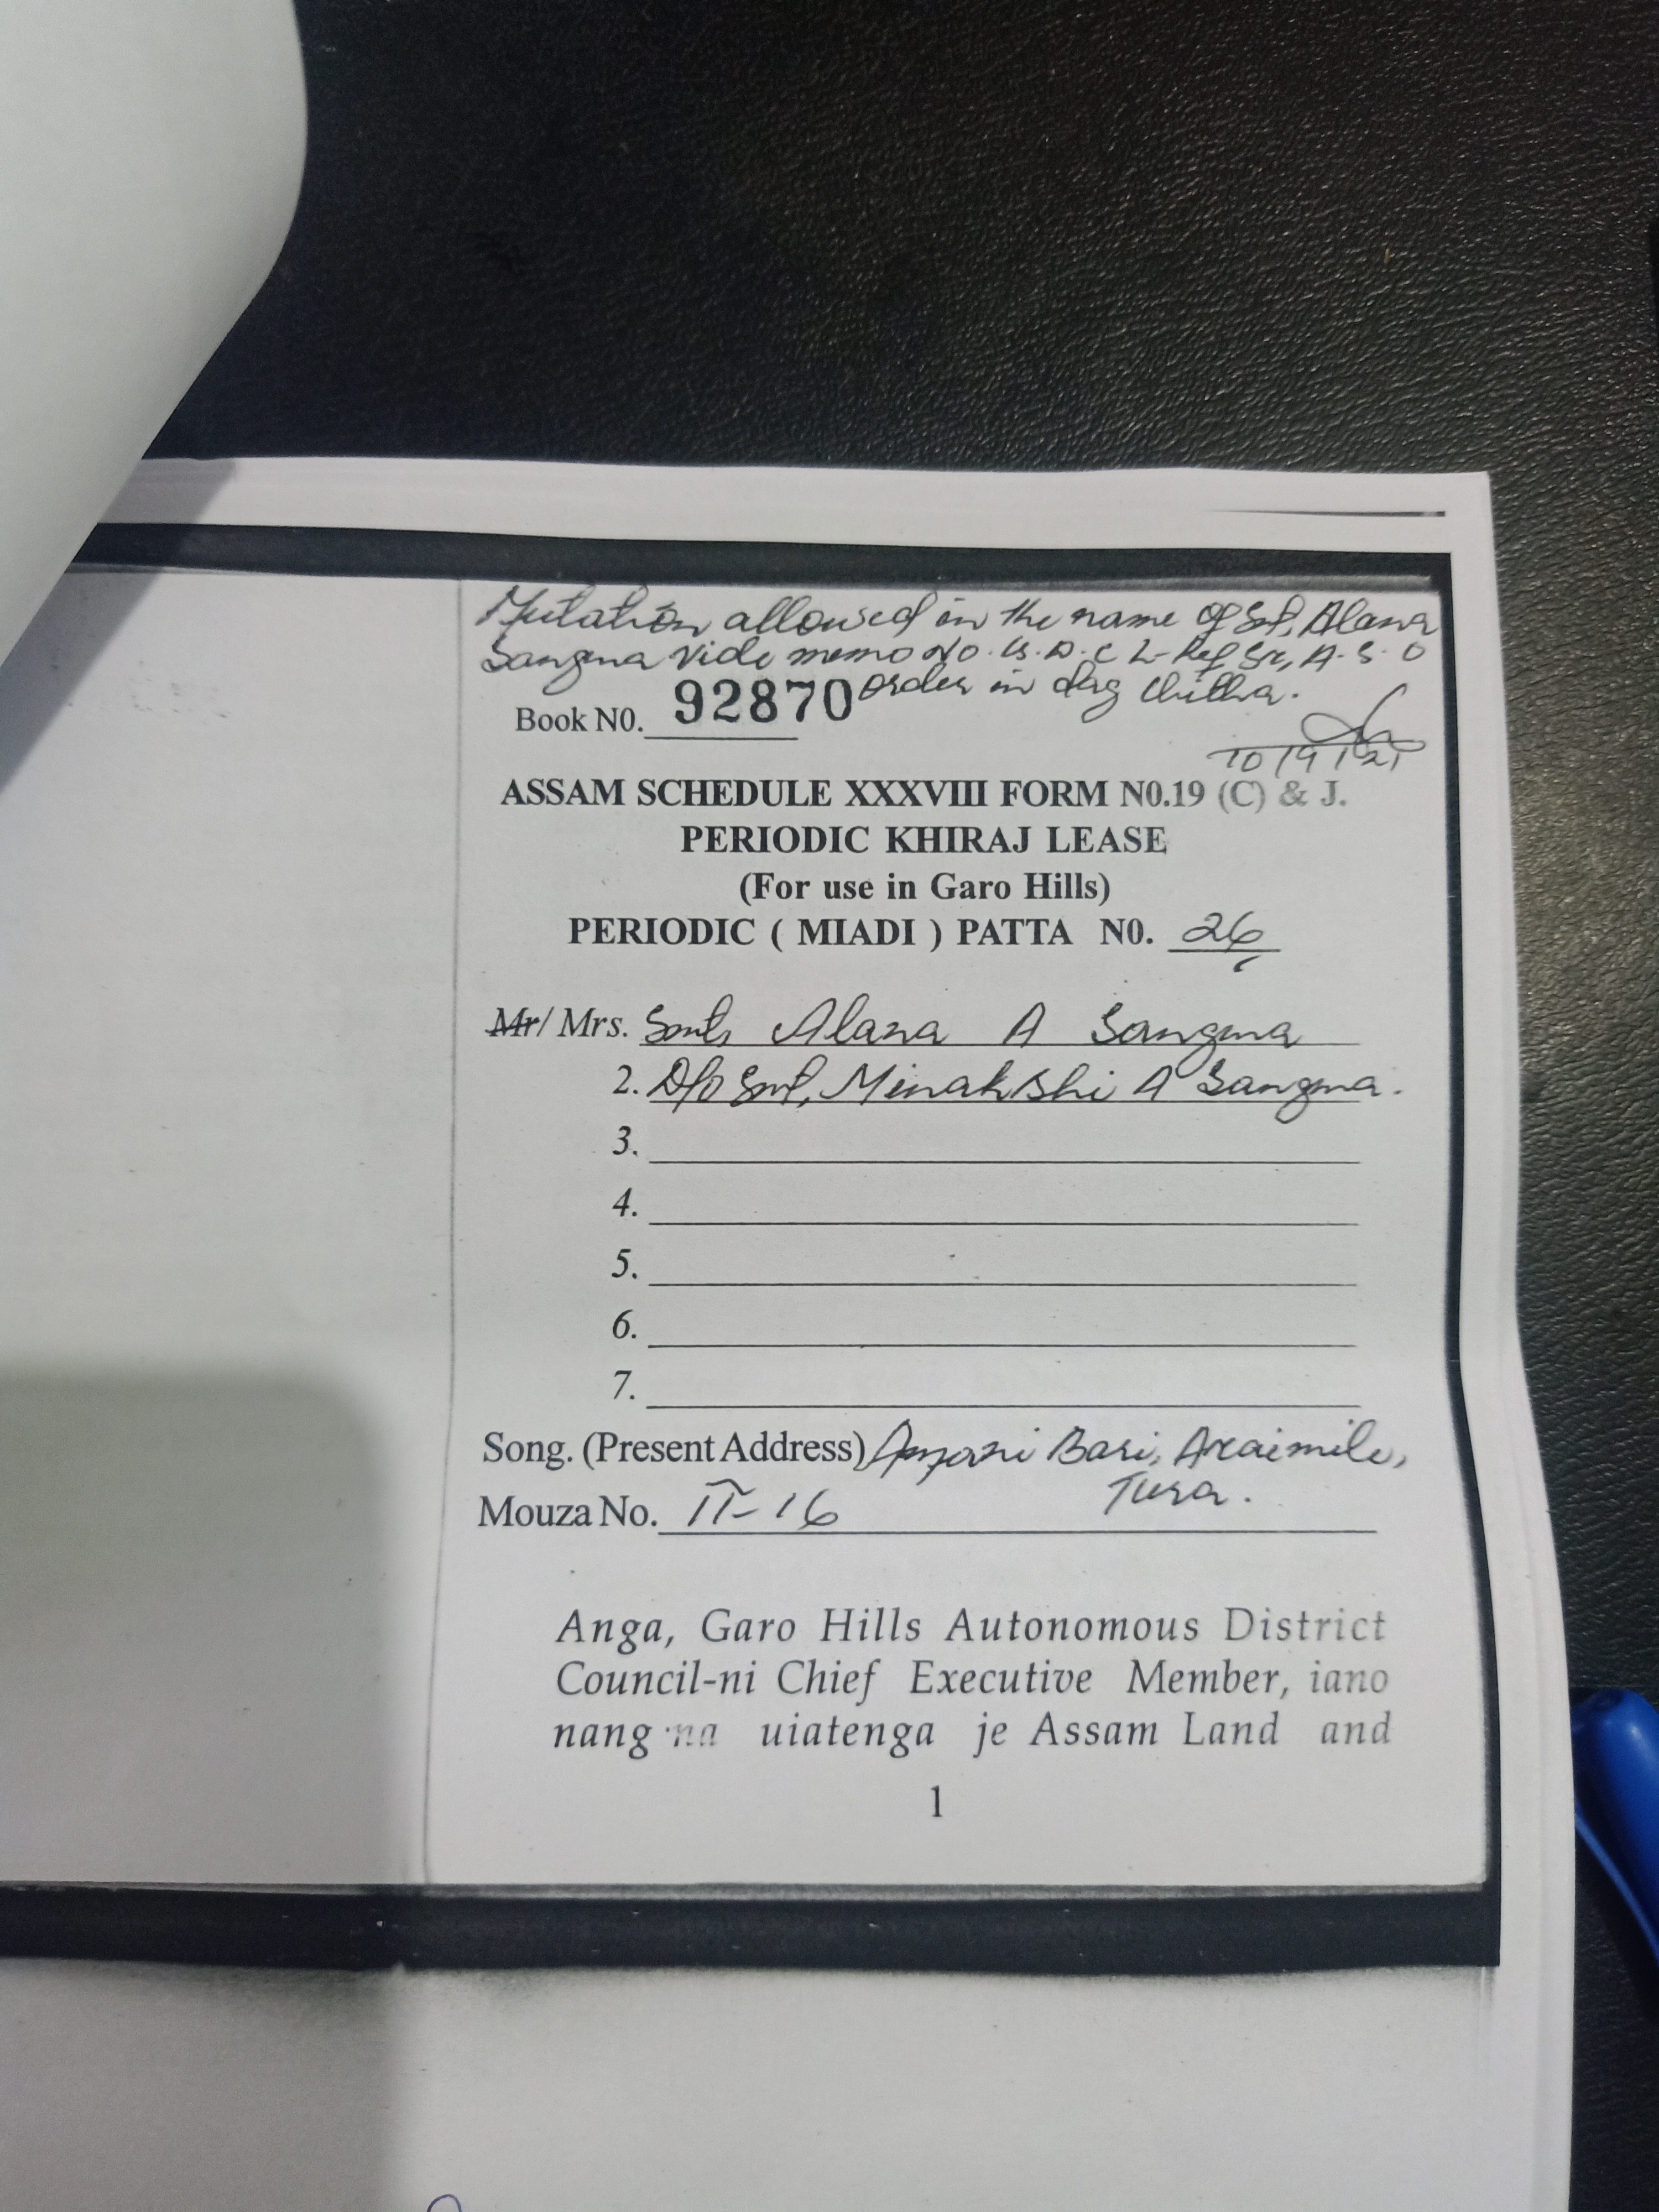 Mutation allowed in the name of Smt, Alana
Sangma vide memo No. G.D.C L- Ref Sr, A.S.O
order in dag chitha.
Book N0. 92870
ASSAM SCHEDULE XXXVIII FORM N0.19 (C) & J.
PERIODIC KHIRAJ LEASE
(For use in Garo Hills)
PERIODIC ( MIADI ) PATTA N0. 26
Mr/ Mrs. Smt, Alana A Sangma
2. D/o Smt, Minakshi A Sangma.
3.
4.
5.
6.
7.
Song. (Present Address) Bari, Araimile,
Tura.
Mouza No. II-16
Anga, Garo Hills Autonomous District
Council-ni Chief Executive Member, iano
nang·na uiatenga je Assam Land and
1